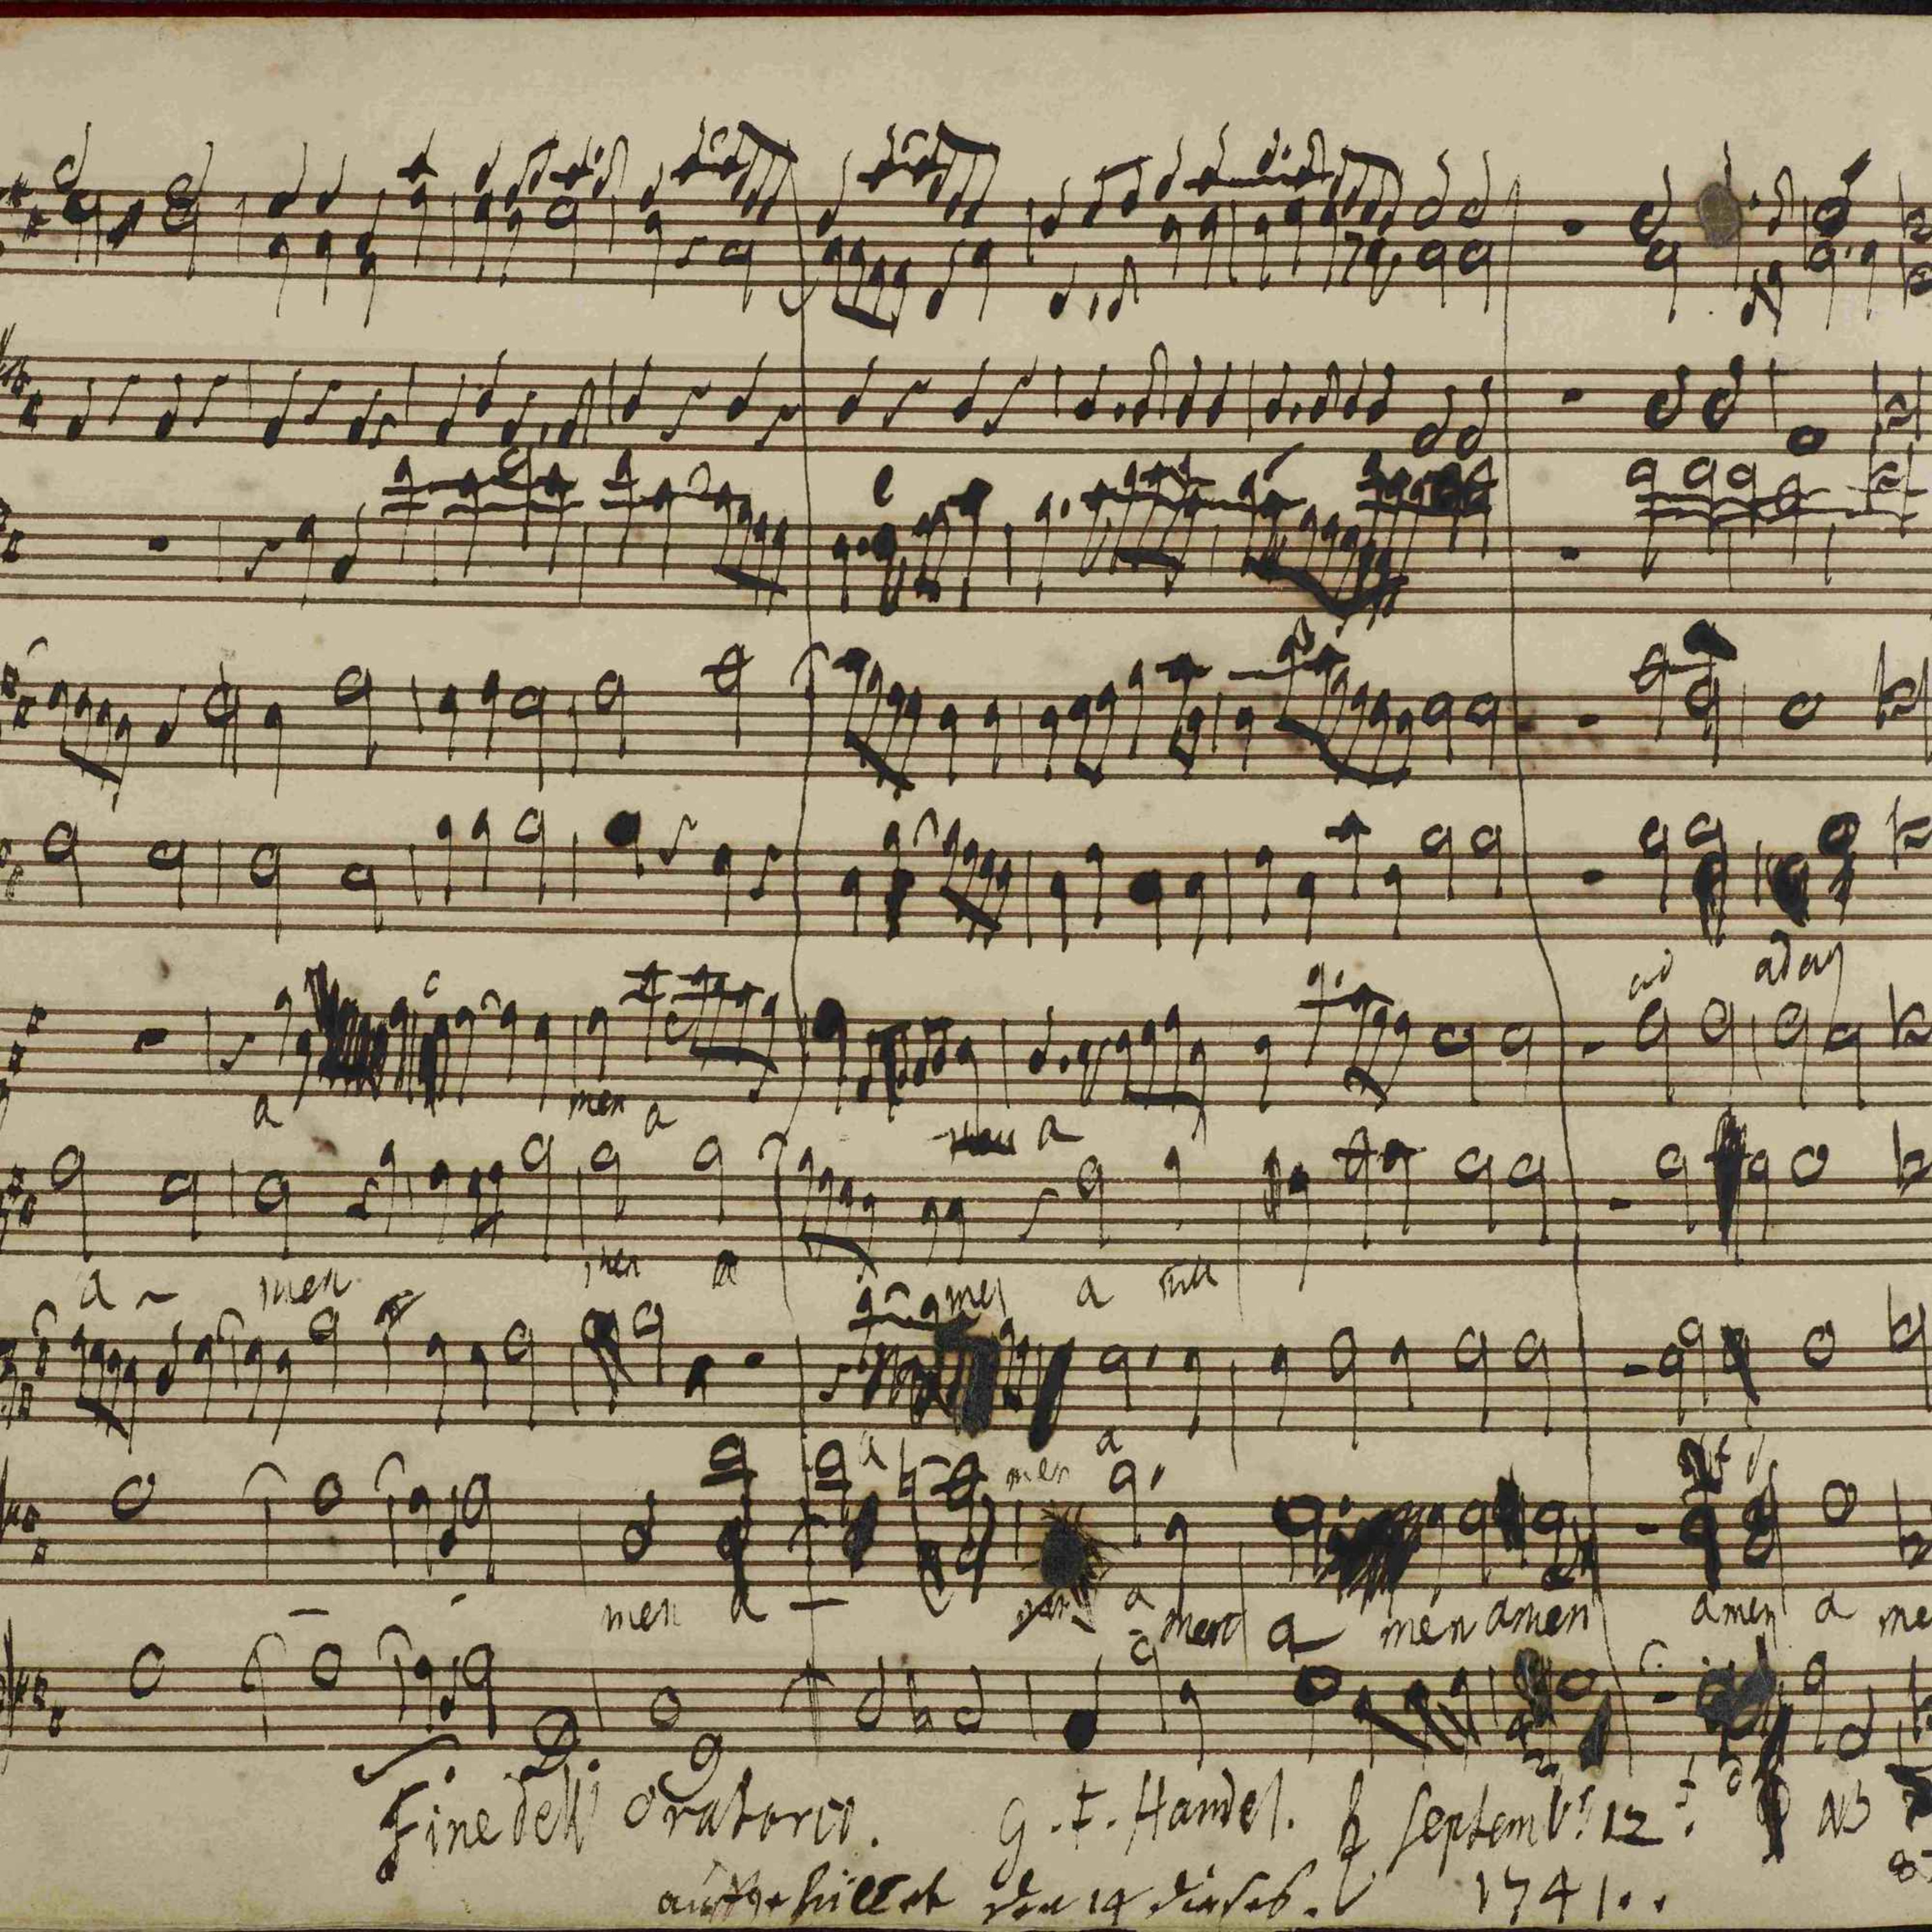 ad adag
a men a men a
a men men a men a men
a men a
men a a men a men amen amen a me
Fine dell' Oratorio. G. F. Handel. ♄ Septembr. 12
ausgefüllet den 14 dieses. 1741..